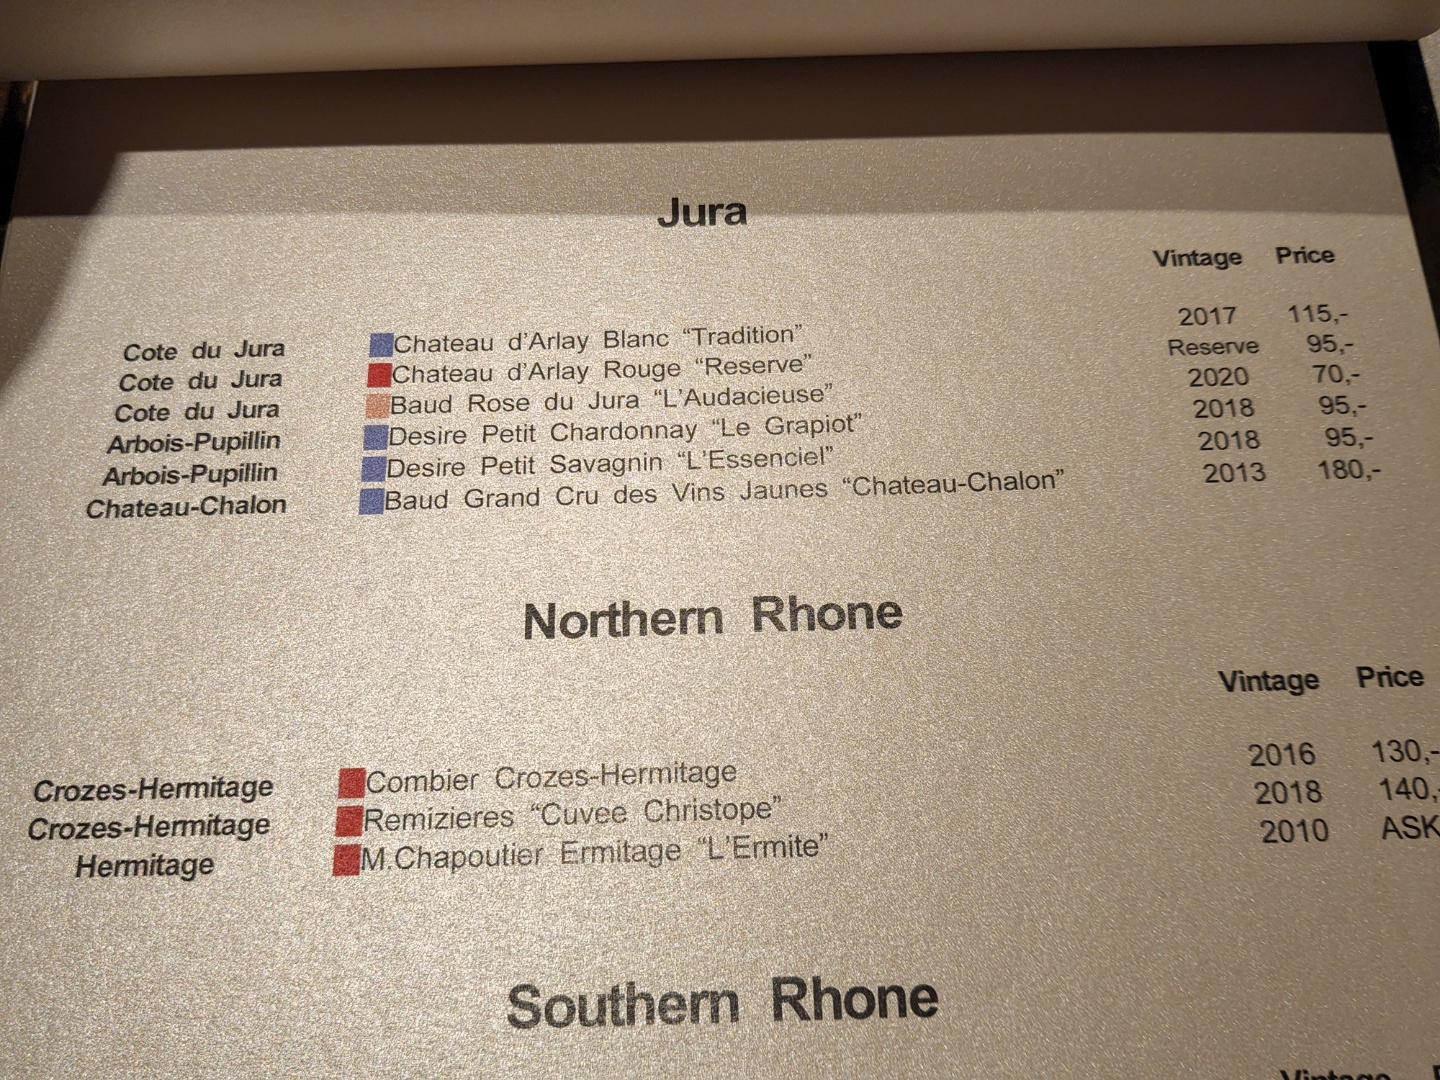 Jura
Vintage Price
Cote du Jura Chateau d'Arlay Blanc “Tradition” 2017 115,-
Cote du Jura Chateau d'Arlay Rouge “Reserve” Reserve 95,-
Cote du Jura Baud Rose du Jura “L'Audacieuse” 2020 70,-
Arbois-Pupillin Desire Petit Chardonnay “Le Grapiot” 2018 95,-
Arbois-Pupillin Desire Petit Savagnin “L'Essenciel” 2018 95,-
Chateau-Chalon Baud Grand Cru des Vins Jaunes “Chateau-Chalon” 2013 180,-
Northern Rhone
Vintage Price
Crozes-Hermitage Combier Crozes-Hermitage 2016 130,-
Crozes-Hermitage Remizieres “Cuvee Christope” 2018 140,-
Hermitage M.Chapoutier Ermitage “L'Ermite” 2010 ASK
Southern Rhone
Vintage